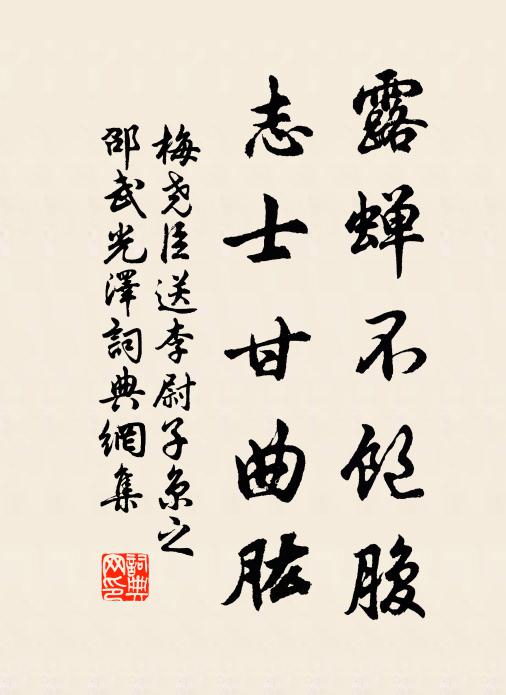 露蝉不飽腹
志士甘曲肱
梅尧臣送李尉子京之
邵武光澤詞典網集
詞典网印